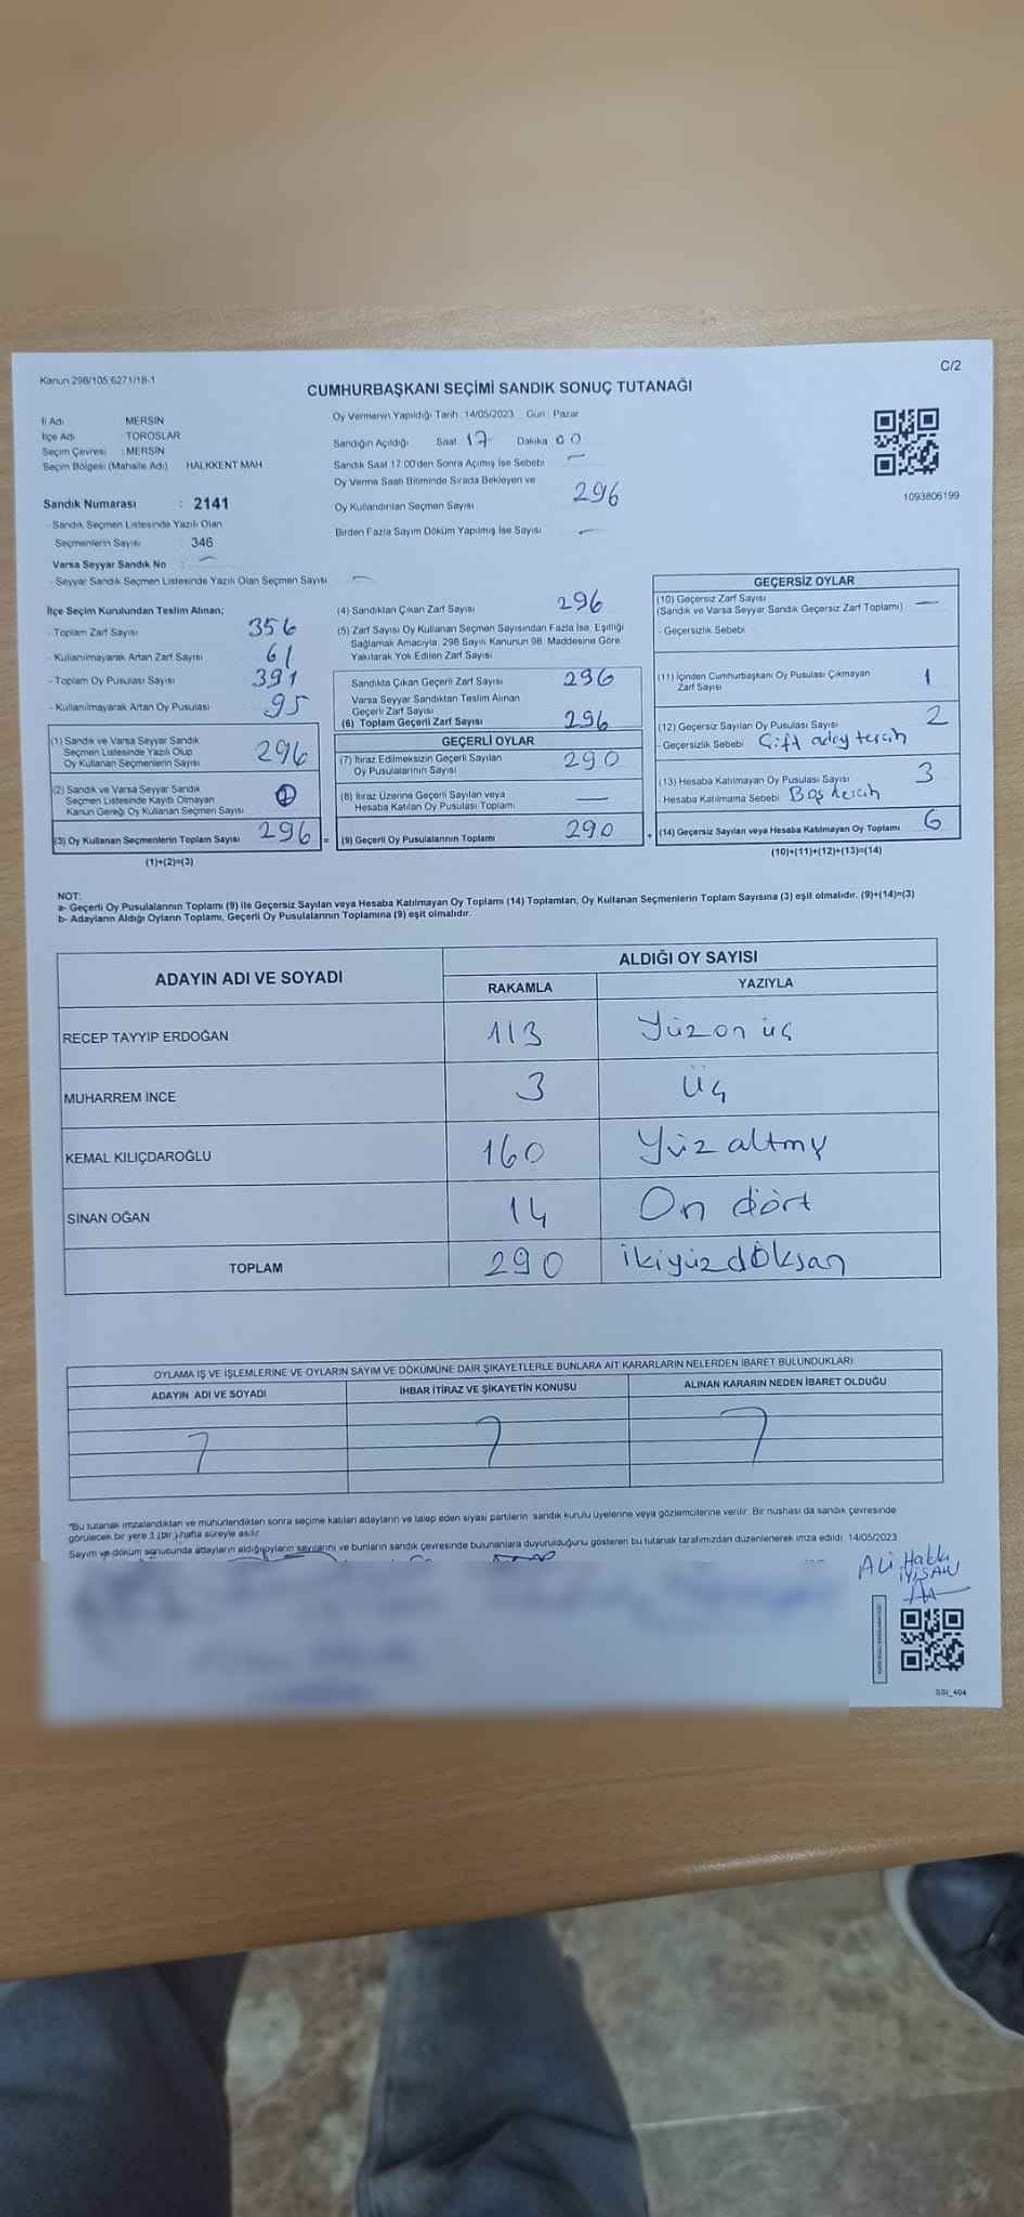 Kanun 298/105 6271/18-1
C/2
CUMHURBAŞKANI SEÇİMİ SANDIK SONUÇ TUTANAĞI
İl Adı MERSİN
İlçe Adı TOROSLAR
Seçim Çevresi : MERSİN
Seçim Bölgesi (Mahalle Adı) HALKKENT MAH
Sandık Numarası : 2141
- Sandık Seçmen Listesinde Yazılı Olan
Seçmenlerin Sayısı 346
Varsa Seyyar Sandık No : —
- Seyyar Sandık Seçmen Listesinde Yazılı Olan Seçmen Sayısı —
Oy Vermenin Yapıldığı Tarih :14/05/2023 Gün : Pazar
Sandığın Açıldığı Saat 17 Dakika 00
Sandık Saat 17:00'den Sonra Açımış İse Sebebi —
Oy Verme Saati Bitiminde Sırada Bekleyen ve
Oy Kullandırılan Seçmen Sayısı 296
Birden Fazla Sayım Döküm Yapılmış İse Sayısı —
1093806199
İlçe Seçim Kurulundan Teslim Alınan;
- Toplam Zarf Sayısı 356
- Kullanılmayarak Artan Zarf Sayısı 61
- Toplam Oy Pusulası Sayısı 391
- Kullanılmayarak Artan Oy Pusulası 95
(1) Sandık ve Varsa Seyyar Sandık
Seçmen Listesinde Yazılı Olup
Oy Kullanan Seçmenlerin Sayısı 296
(2) Sandık ve Varsa Seyyar Sandık
Seçmen Listesinde Kayıtlı Olmayan
Kanun Gereği Oy Kullanan Seçmen Sayısı
(3) Oy Kullanan Seçmenlerin Toplam Sayısı 296 =
(1)+(2)=(3)
(4) Sandıktan Çıkan Zarf Sayısı 296
(5) Zarf Sayısı Oy Kullanan Seçmen Sayısından Fazla İse, Eşitliği
Sağlamak Amacıyla, 298 Sayılı Kanunun 98. Maddesine Göre
Yakılarak Yok Edilen Zarf Sayısı
Sandıkta Çıkan Geçerli Zarf Sayısı 296
Varsa Seyyar Sandıktan Teslim Alınan
Geçerli Zarf Sayısı
(6) Toplam Geçerli Zarf Sayısı 296
GEÇERLİ OYLAR
(7) İtiraz Edilmeksizin Geçerli Sayılan
Oy Pusulalarının Sayısı 290
(8) İtiraz Üzerine Geçerli Sayılan veya
Hesaba Katılan Oy Pusulası Toplamı —
(9) Geçerli Oy Pusulalarının Toplamı 290 +
GEÇERSİZ OYLAR
(10) Geçersiz Zarf Sayısı
(Sandık ve Varsa Seyyar Sandık Geçersiz Zarf Toplamı) —
- Geçersizlik Sebebi
(11) İçinden Cumhurbaşkanı Oy Pusulası Çıkmayan
Zarf Sayısı 1
(12) Geçersiz Sayılan Oy Pusulası Sayısı 2
- Geçersizlik Sebebi Çift aday tercih
(13) Hesaba Katılmayan Oy Pusulası Sayısı 3
Hesaba Katılmama Sebebi Boş tercih
(14) Geçersiz Sayılan veya Hesaba Katılmayan Oy Toplamı 6
(10)+(11)+(12)+(13)=(14)
NOT:
a- Geçerli Oy Pusulalarının Toplamı (9) ile Geçersiz Sayılan veya Hesaba Katılmayan Oy Toplamı (14) Toplamları, Oy Kullanan Seçmenlerin Toplam Sayısına (3) eşit olmalıdır. (9)+(14)=(3)
b- Adayların Aldığı Oyların Toplamı, Geçerli Oy Pusulalarının Toplamına (9) eşit olmalıdır.
ADAYIN ADI VE SOYADI ALDIĞI OY SAYISI
RAKAMLA YAZIYLA
RECEP TAYYİP ERDOĞAN 113 Yüz on üç
MUHARREM İNCE 3 üç
KEMAL KILIÇDAROĞLU 160 Yüz altmış
SİNAN OĞAN 14 On dört
TOPLAM 290 ikiyüzdöksan
OYLAMA İŞ VE İŞLEMLERİNE VE OYLARIN SAYIM VE DÖKÜMÜNE DAİR ŞİKAYETLERLE BUNLARA AİT KARARLARIN NELERDEN İBARET BULUNDUKLARI
ADAYIN ADI VE SOYADI İHBAR İTİRAZ VE ŞİKAYETİN KONUSU ALINAN KARARIN NEDEN İBARET OLDUĞU
*Bu tutanak imzalandıktan ve mühürlendikten sonra seçime katılan adayların ve talep eden siyasi partilerin sandık kurulu üyelerine veya gözlemcilerine verilir. Bir nüshası da sandık çevresinde
görülecek bir yere 1 (bir) hafta süreyle asılır.
Sayım ve döküm sonucunda adayların aldığı oyların sayılarını ve bunların sandık çevresinde bulunanlara duyurulduğunu gösteren bu tutanak tarafımızdan düzenlenerek imza edildi. 14/05/2023
Ali Hakkı
İYİSAN
SSI_404